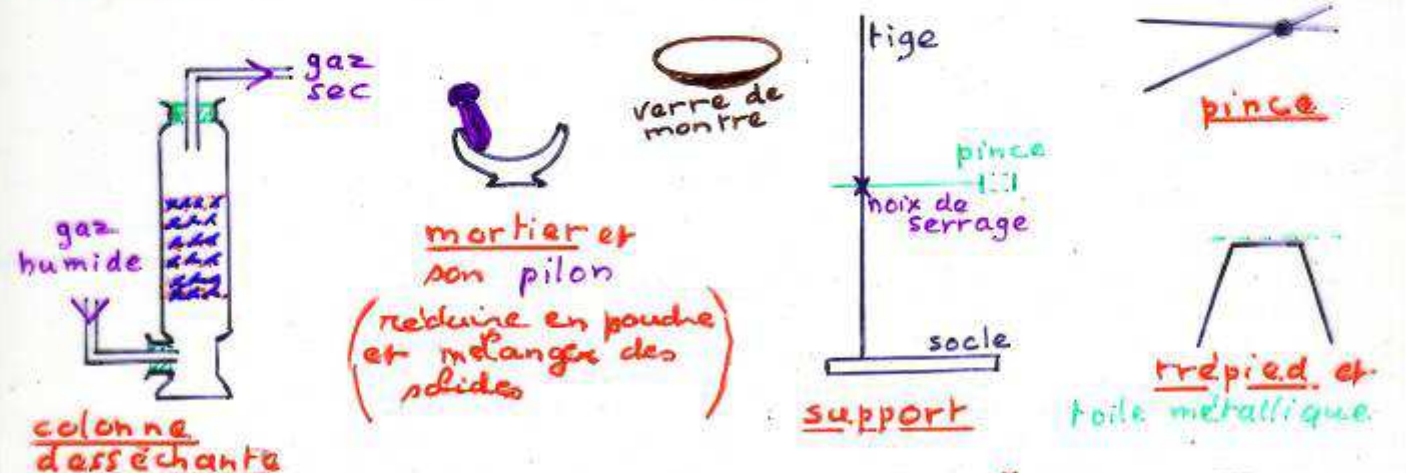 gaz
sec
gaz
humide
colonne
desséchante
mortier et
son pilon
(réduire en poudre
et mélanger des
solides)
verre de
montre
tige
pince
noix de
serrage
socle
support
pince
trépied et
toile métallique